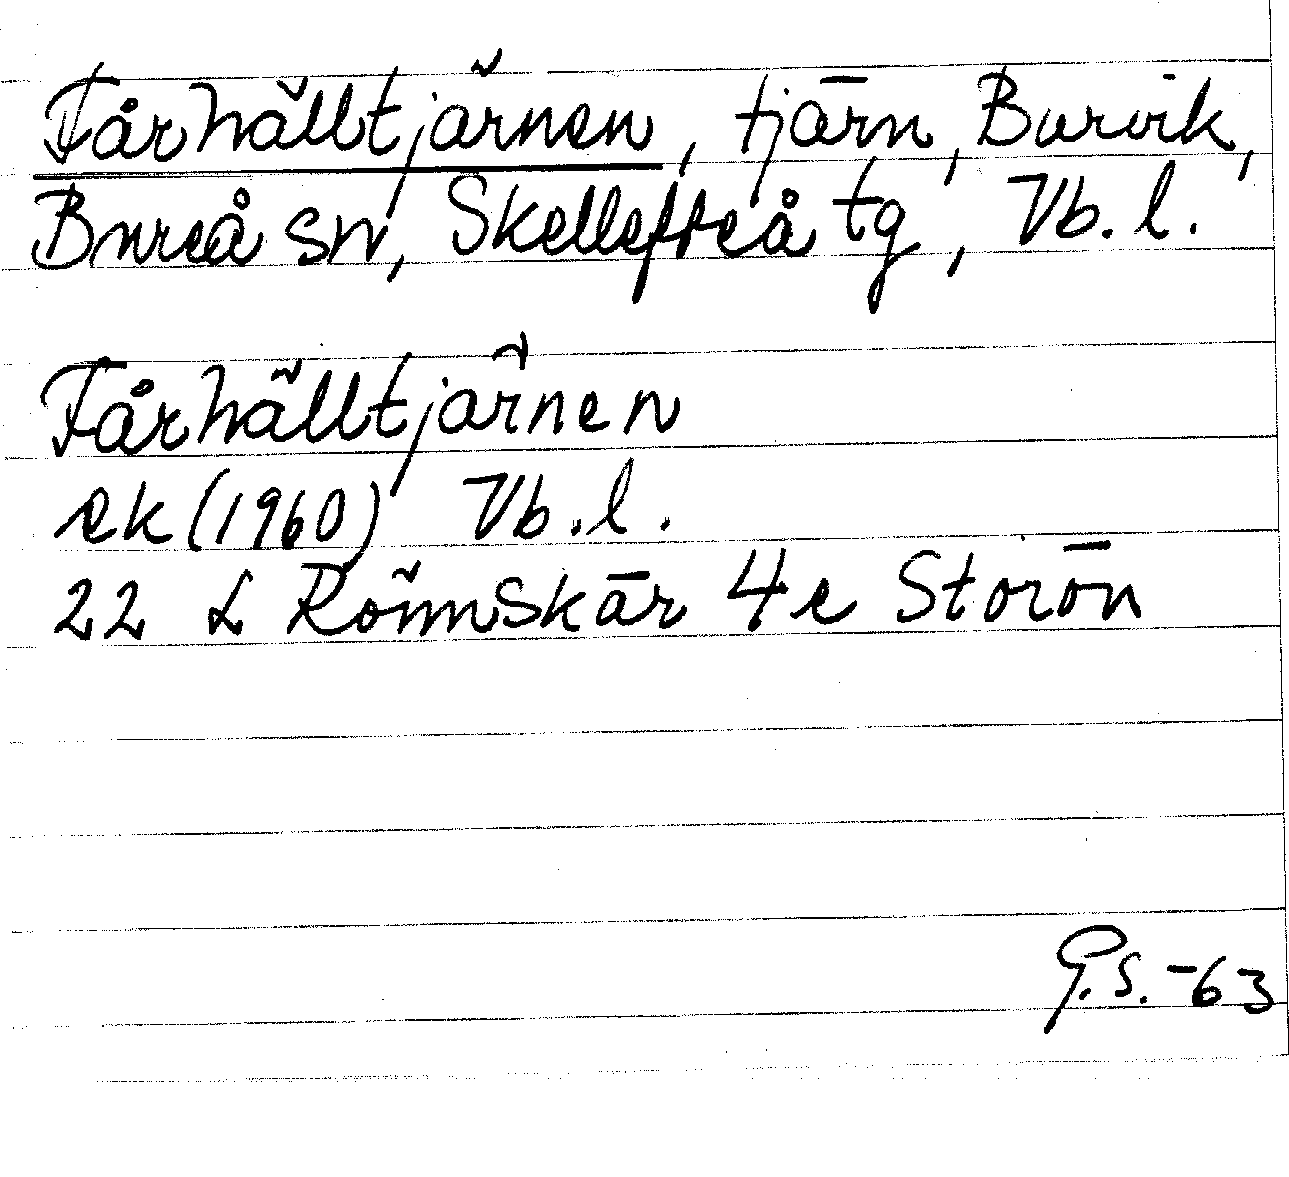 Fårhälltjärnen, tjärn, Burvik,
Bureå sn, Skellefteå tg, Vb. l.
Fårhälltjärnen
ek (1960) Vb. l.
22 L Römskär 4e Storön
G.S. -63